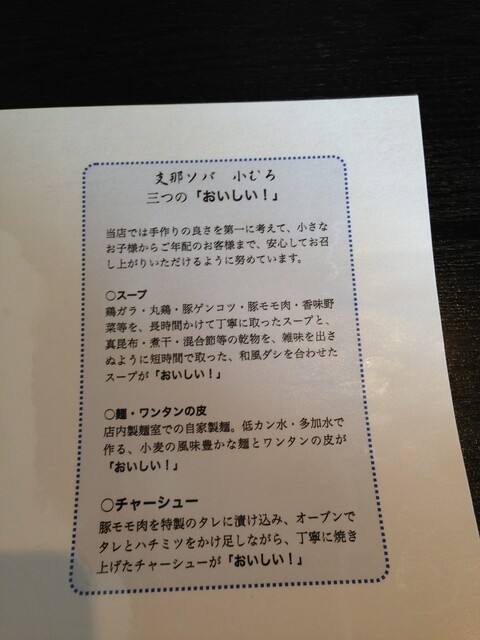 支那ソバ 小むろ
三つの「おいしい！」
当店では手作りの良さを第一に考えて、小さな
お子様からご年配のお客様まで、安心してお召
し上がりいただけるように努めています。
○スープ
鶏ガラ・丸鶏・豚ゲンコツ・豚モモ肉・香味野
菜等を、長時間かけて丁寧に取ったスープと、
真昆布・煮干・混合節等の乾物を、雑味を出さ
ぬように短時間で取った、和風ダシを合わせた
スープが「おいしい！」
○麺・ワンタンの皮
店内製麺室での自家製麺。低カン水・多加水で
作る、小麦の風味豊かな麺とワンタンの皮が
「おいしい！」
○チャーシュー
豚モモ肉を特製のタレに漬け込み、オーブンで
タレとハチミツをかけ足しながら、丁寧に焼き
上げたチャーシューが「おいしい！」